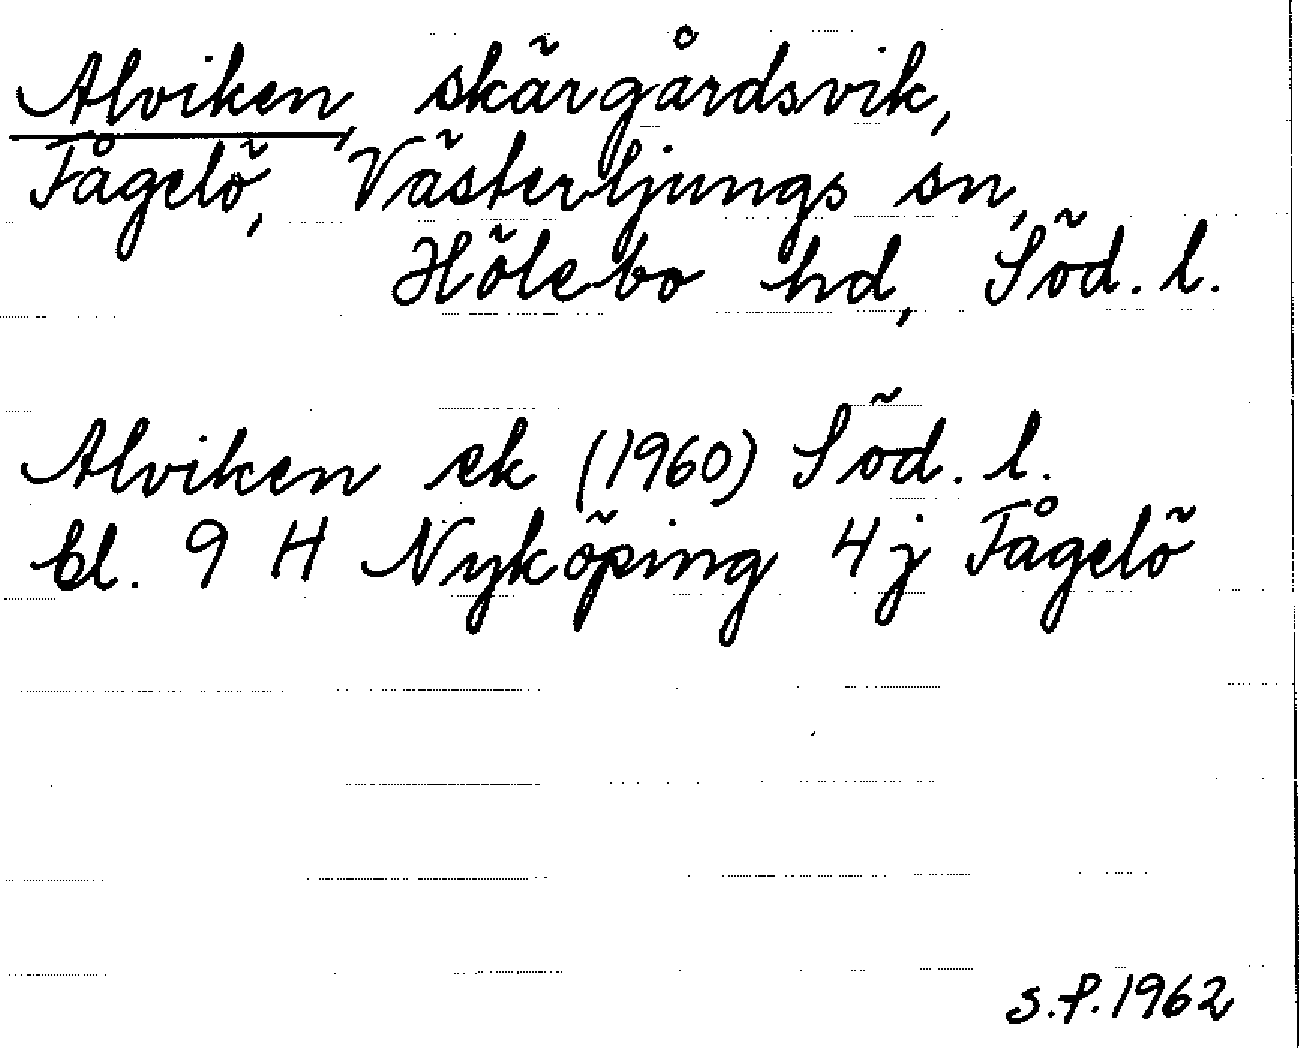 Alviken, skärgårdsvik,
Fågelö, Västerljungs sn,
Hölebo hd, Söd. l.
Alviken ek (1960) Söd. l.
bl. 9 H Nyköping 4 j Fågelö
S.P. 1962